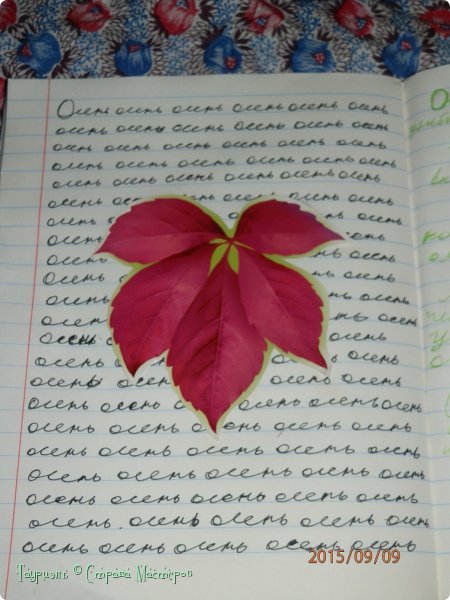 Осень осень осень осень осень осень
осень осень осень осень осень осень
осень осень осень осень осень осень
осень осень осень осень осень осень
осень осень осень осень осень осень
осень осень осень
осень осень осень
осень осень
осень осень осень
осень осень осень
осень осень осень
осень осень осень
осень осень
осень осень осень
осень осень осень осень осень
осень осень осень осень осень
осень осень осень осень осень
осень осень осень осень осень
осень осень осень осень осень
осень осень осень осень осень
осень осень осень осень осень
осень осень осень осень осень
2015/09/09
Тауриэль © Страна Мастеров